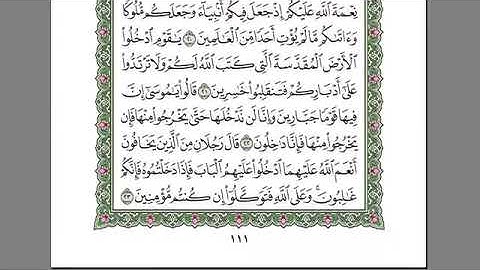 نِعْمَةَ ٱللَّهِ عَلَيْكُمْ إِذْ جَعَلَ فِيكُمْ أَنۢبِيَآءَ وَجَعَلَكُم مُّلُوكًا
وَءَاتَىٰكُم مَّا لَمْ يُؤْتِ أَحَدًا مِّنَ ٱلْعَٰلَمِينَ ٢٠ يَٰقَوْمِ ٱدْخُلُوا۟
ٱلْأَرْضَ ٱلْمُقَدَّسَةَ ٱلَّتِى كَتَبَ ٱللَّهُ لَكُمْ وَلَا تَرْتَدُّوا۟
عَلَىٰٓ أَدْبَارِكُمْ فَتَنقَلِبُوا۟ خَٰسِرِينَ ٢١ قَالُوا۟ يَٰمُوسَىٰٓ إِنَّ
فِيهَا قَوْمًا جَبَّارِينَ وَإِنَّا لَن نَّدْخُلَهَا حَتَّىٰ يَخْرُجُوا۟ مِنْهَا فَإِن
يَخْرُجُوا۟ مِنْهَا فَإِنَّا دَٰخِلُونَ ٢٢ قَالَ رَجُلَانِ مِنَ ٱلَّذِينَ يَخَافُونَ
أَنْعَمَ ٱللَّهُ عَلَيْهِمَا ٱدْخُلُوا۟ عَلَيْهِمُ ٱلْبَابَ فَإِذَا دَخَلْتُمُوهُ فَإِنَّكُمْ
غَٰلِبُونَ ۚ وَعَلَى ٱللَّهِ فَتَوَكَّلُوٓا۟ إِن كُنتُم مُّؤْمِنِينَ ٢٣
١١١